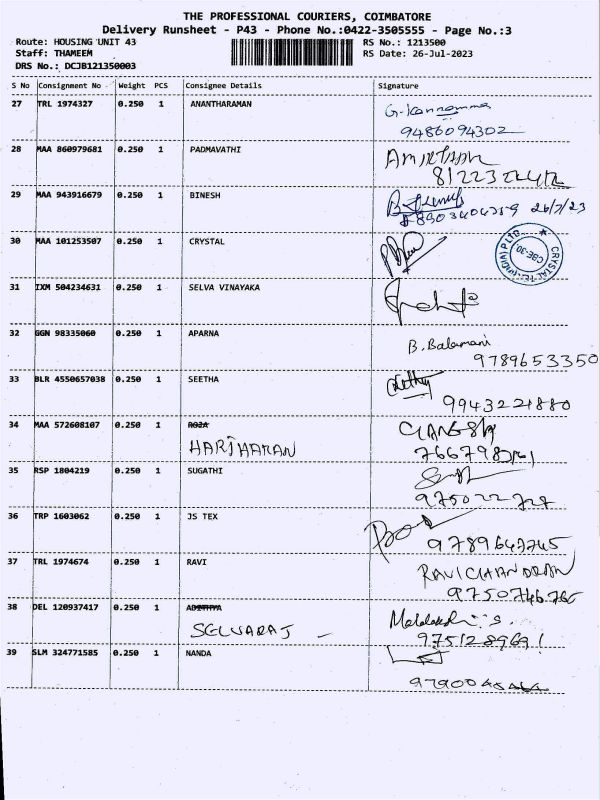 THE PROFESSIONAL COURIERS, COIMBATORE
Delivery Runsheet - P43 - Phone No.:0422-3505555 - Page No.:3
Route: HOUSING UNIT 43
RS No.: 1213500
Staff: THAMEEM
RS Date: 26-Jul-2023
DRS No.: DCJB121350003
S No Consignment No Weight PCS Consignee Details Signature
27 TRL 1974327 0.250 1 ANANTHARAMAN G. Kannamma
9486094302
28 MAA 860979681 0.250 1 PADMAVATHI
29 MAA 943916679 0.250 1 BINESH
26/7/23
30 MAA 101253507 0.250 1 CRYSTAL
CBE-30
31 IXM 504234631 0.250 1 SELVA VINAYAKA
32 GGN 98335060 0.250 1 APARNA
B. Balamani
9789653350
33 BLR 4550657038 0.250 1 SEETHA
9943221880
34 MAA 572608107 0.250 1 ROJA
HARIHARAN
35 RSP 1804219 0.250 1 SUGATHI
36 TRP 1603062 0.250 1 JS TEX
37 TRL 1974674 0.250 1 RAVI
RAVICHANDRAN
38 DEL 120937417 0.250 1 ADITHYA
SELVARAJ
39 SLM 324771585 0.250 1 NANDA